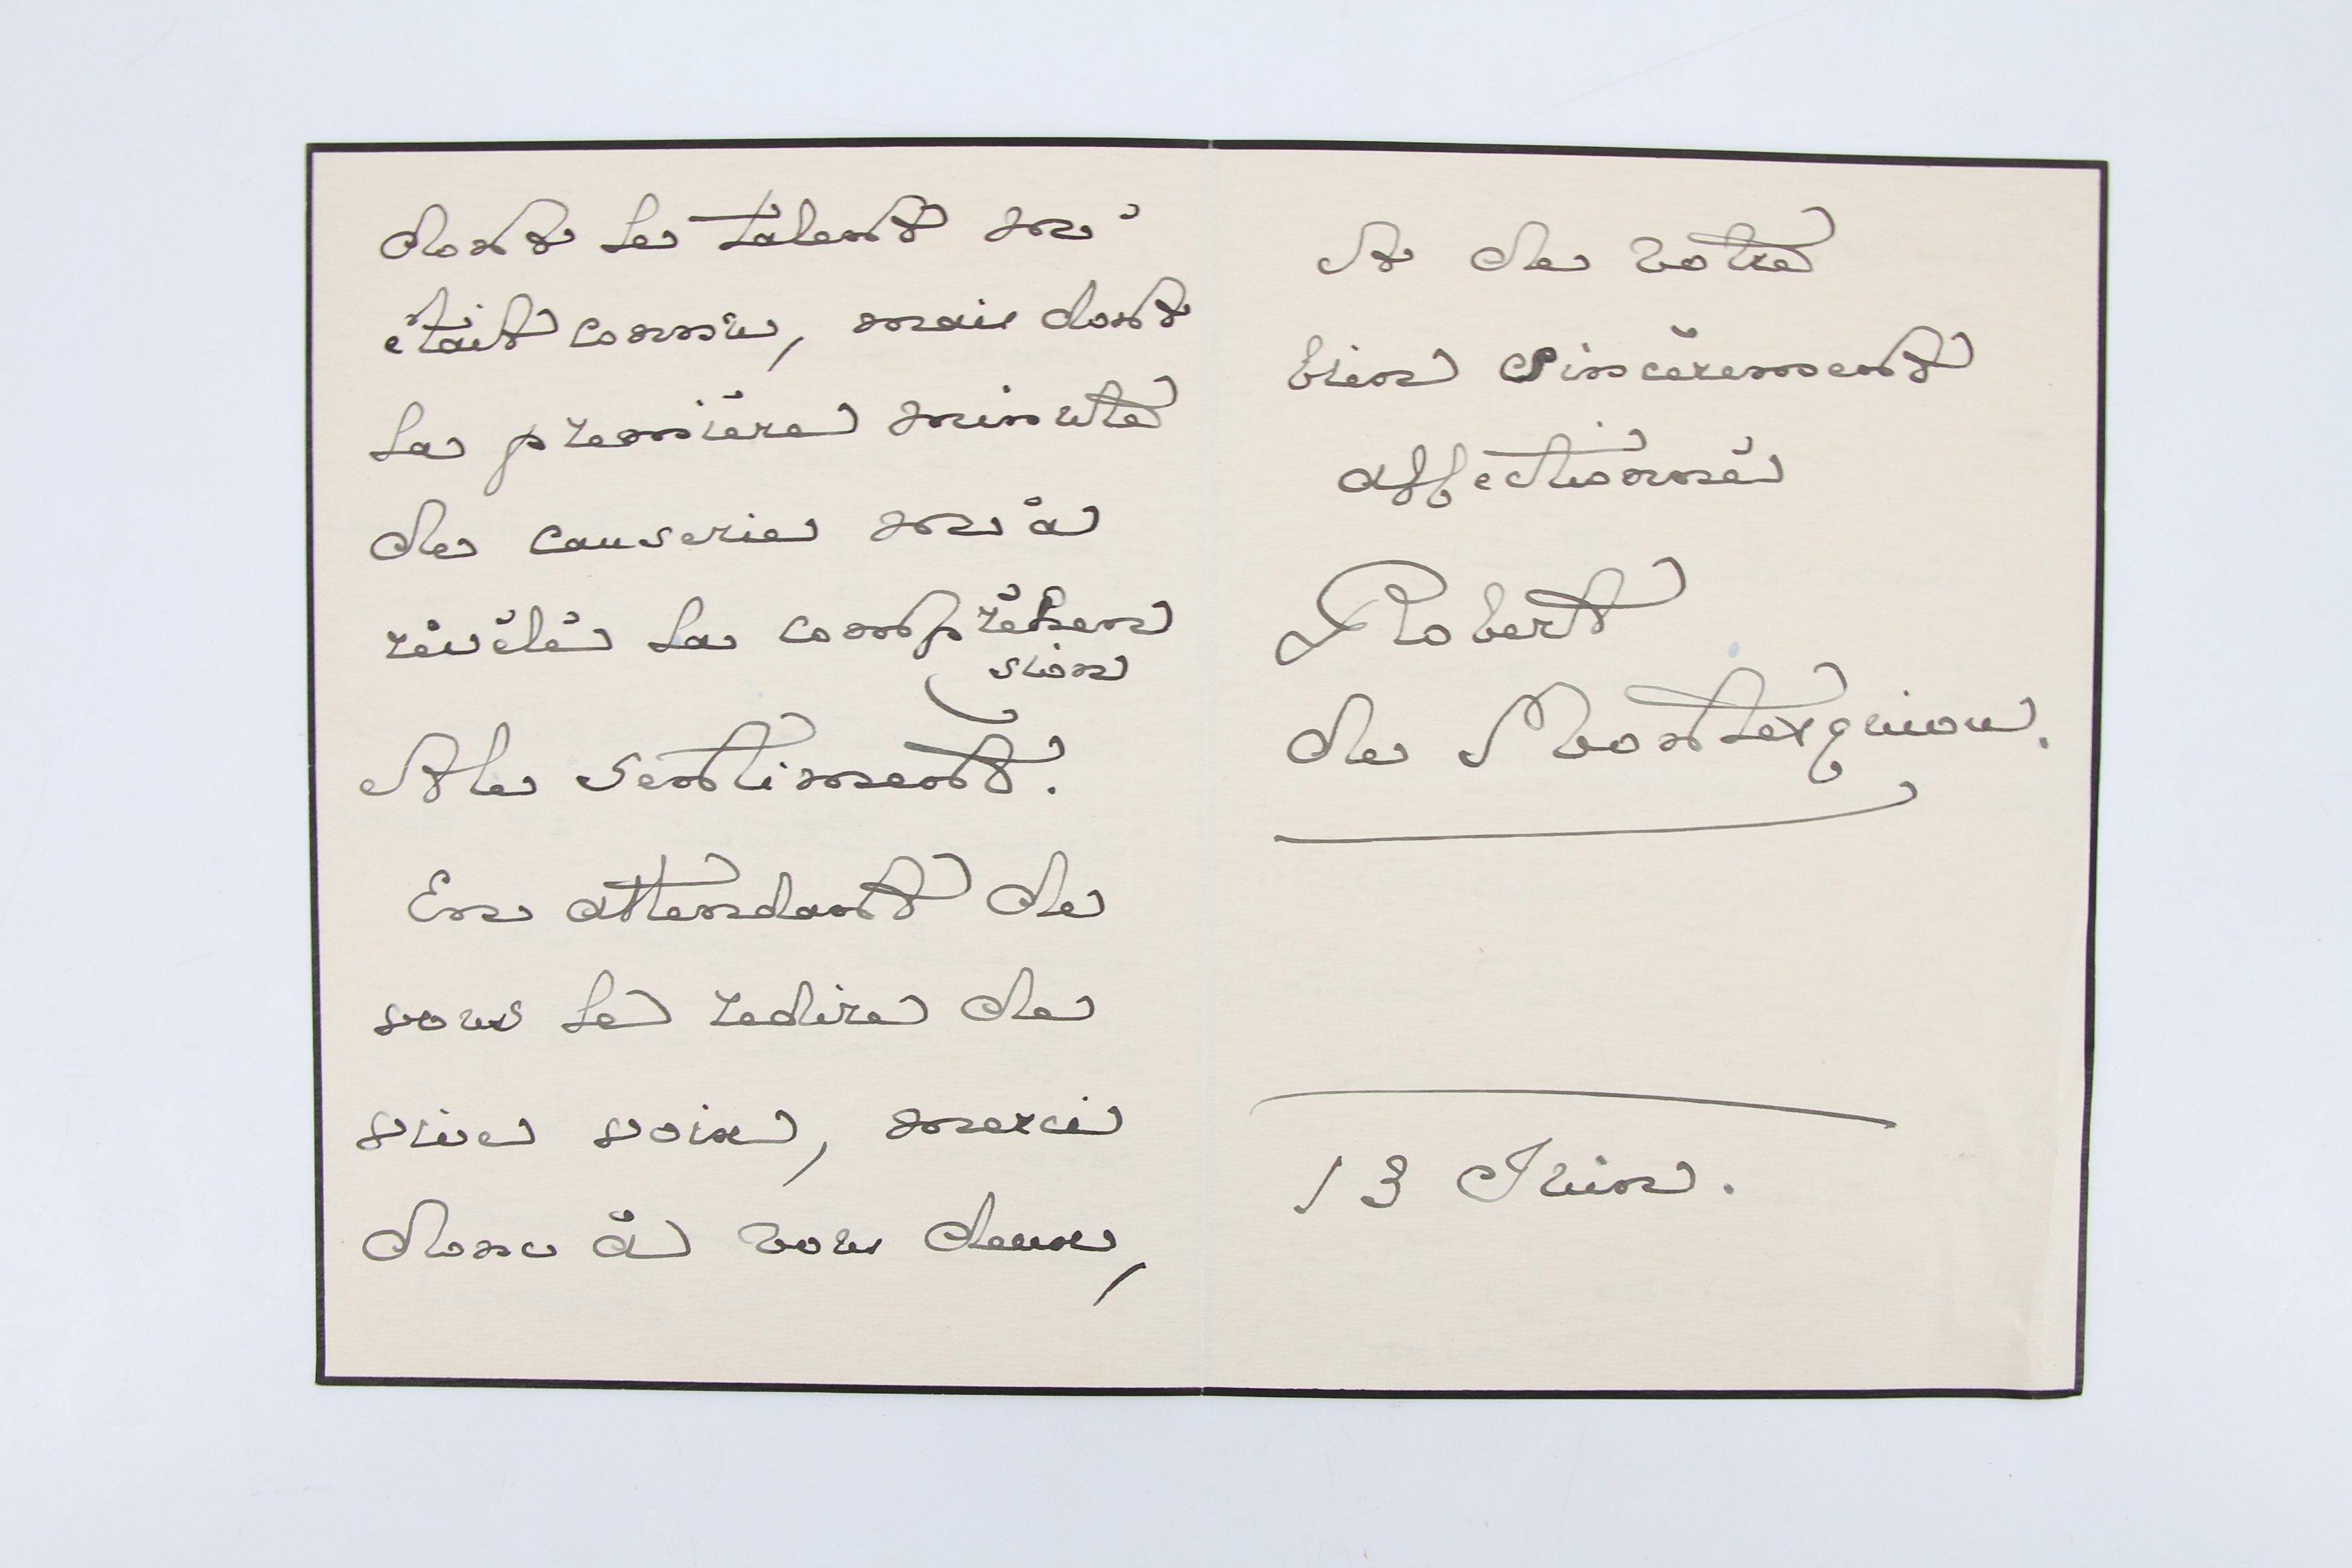 dont le talent m'
était connu, mais dont
la première minute
de causerie m'a
révélé la compréhen
sion
et le sentiment.
En attendant de
vous le redire de
vive voix, merci
donc à vous deux,
et de votre
bien sincèrement
affectionné
Robert
de Montesquiou.
13 Juin.